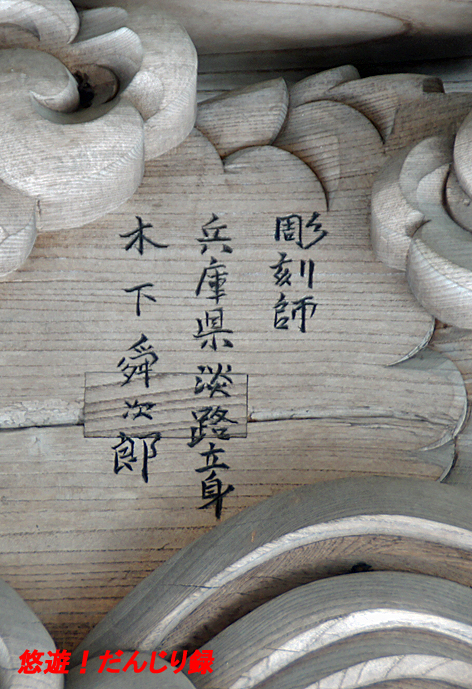 彫刻師
兵庫県淡路立身
木下舜次郎
悠遊！だんじり録